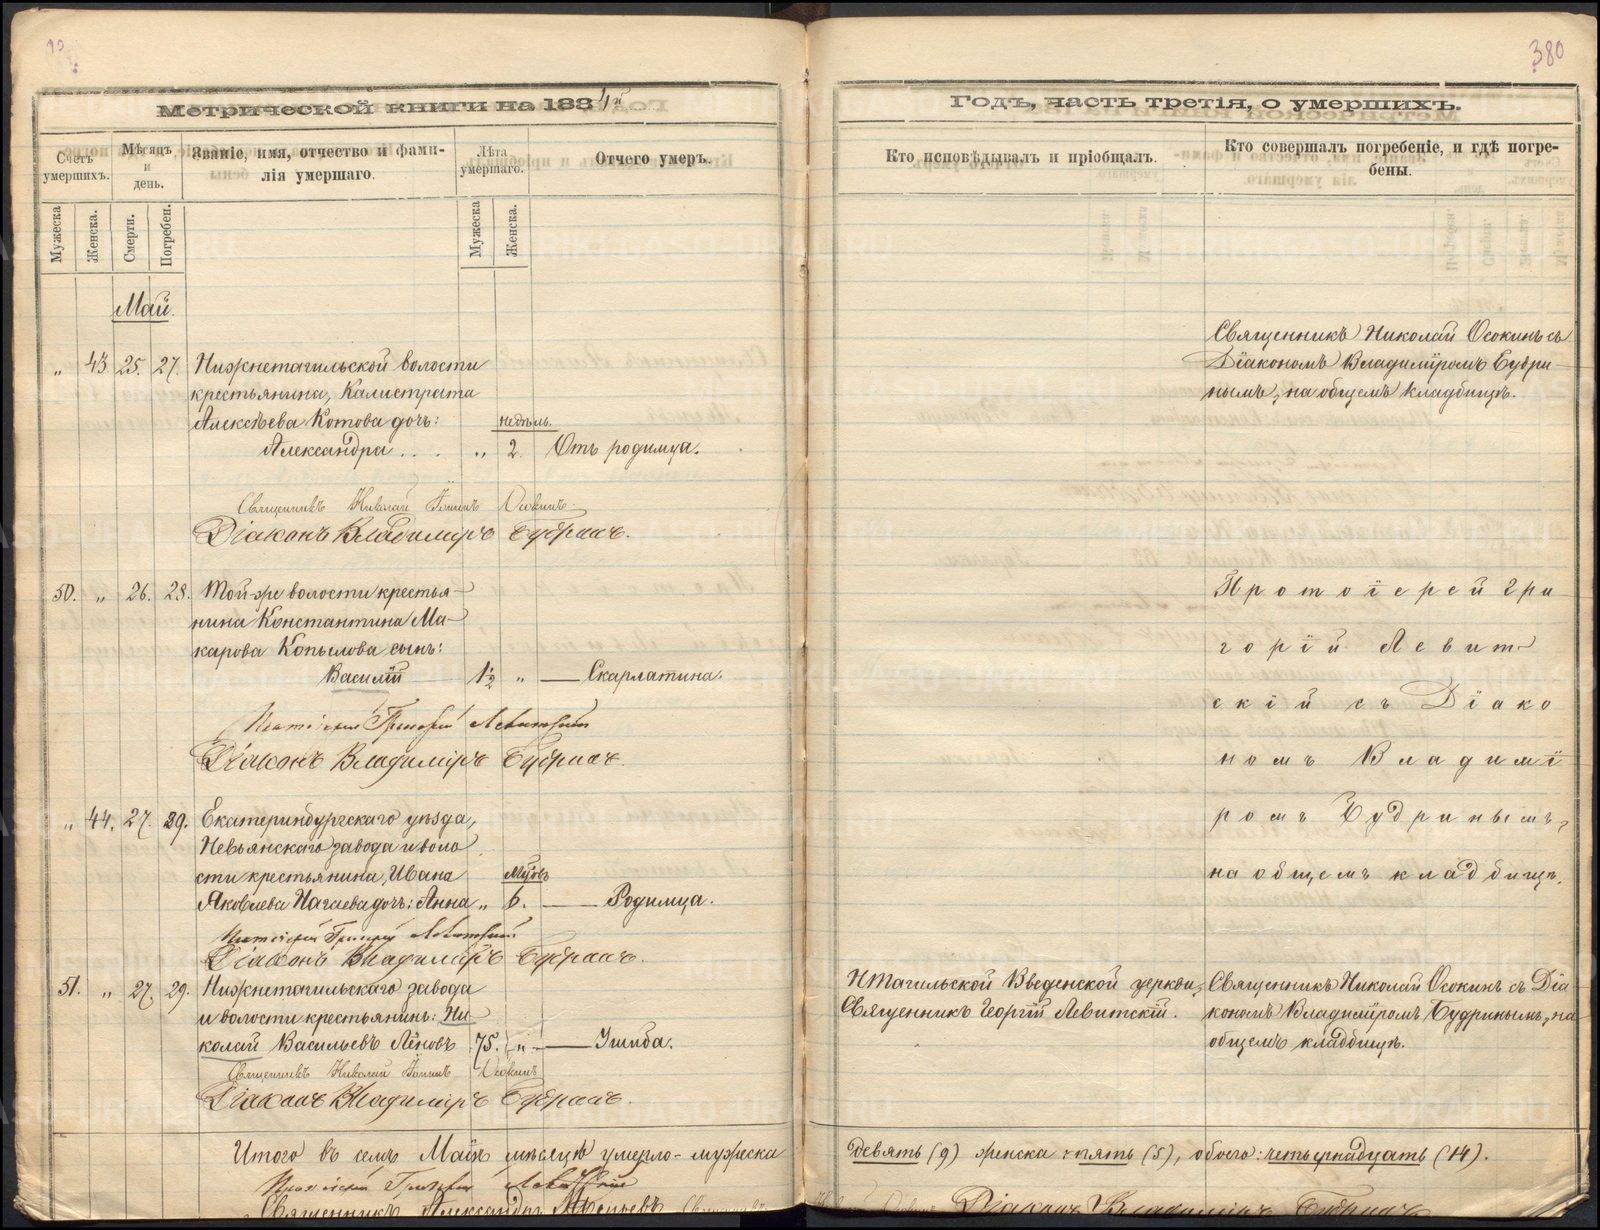 380
Метрической книги на 1884й
Годъ, часть третія, о умершихъ.
Счетъ умершихъ.
Мѣсяцъ и день.
Званіе, имя, отчество и фами-
лія умершаго.
Лѣта умершаго.
Отчего умеръ.
Кто исповѣдывалъ и пріобщалъ.
Кто совершалъ погребеніе, и гдѣ погре-
бены.
Мужеска
Женска.
Смерти.
Погребен.
Мужеска
Женска.
Май.
„ 43. 25. 27. Нижнетагильской волости
крестьянина, Калистрата
Алексѣева Котова дочь: недѣль.
Александра . . . „ 2. Отъ родимца.
Священникъ Николай Осокинъ съ
Діакономъ Владиміромъ Будри-
нымъ, на общемъ кладбищѣ.
Священникъ Николай Осокинъ
Діаконъ Владиміръ Будринъ.
50. „ 26. 28. Той-же волости крестья-
нина Константина Ма-
карова Копылова сынъ:
Василій 1½ „ — Скарлатина.
Протоіерей Григорій Левитскій
Діаконъ Владиміръ Будринъ.
Протоіерей Гри
горій Левит-
скій съ Діако
номъ Владимі
ромъ Будринымъ,
на общемъ кладбищѣ.
„ 44. 27. 29. Екатеринбургскаго уѣзда,
Невьянскаго завода и воло
сти крестьянина, Ивана
Яковлева Нагаева дочь: Анна „ 6. — Родимца.
Протоіерей Григорій Левитскій
Діаконъ Владиміръ Будринъ.
51. „ 27. 29. Нижнетагильскаго завода
и волости крестьянинъ: Ни
колай Васильевъ Лёновъ 75. „ — Ушиба.
Священникъ Николай Осокинъ
Діаконъ Владиміръ Будринъ.
НТагильской Введенской церкви,
Священникъ Георгій Левитскій.
Священникъ Николай Осокинъ съ Діа
кономъ Владиміромъ Будринымъ, на
общемъ кладбищѣ.
Итого въ семъ Маѣ мѣсяцѣ умерло - мужеска девять (9) женска - пять (5), обоего: четырнадцать (14).
Протоіерей Григорій Левитскій
Священникъ Александръ
Діаконъ Владиміръ Будринъ